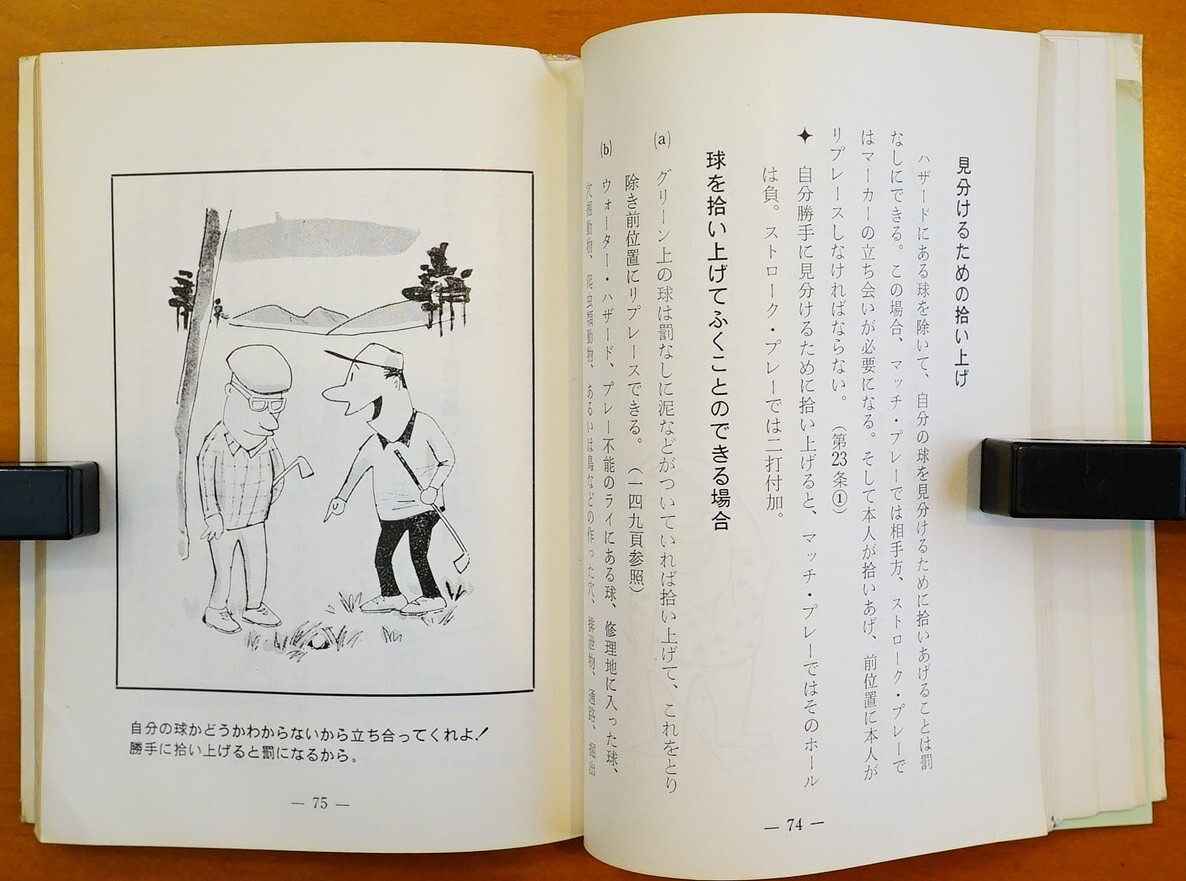 見分けるための拾い上げ
ハザードにある球を除いて、自分の球を見分けるために拾いあげることは罰
なしにできる。この場合、マッチ・プレーでは相手方、ストローク・プレーで
はマーカーの立ち会いが必要になる。そして本人が拾いあげ、前位置に本人が
リプレースしなければならない。（第23条①）
✦ 自分勝手に見分けるために拾い上げると、マッチ・プレーではそのホール
は負。ストローク・プレーでは二打付加。
球を拾い上げてふくことのできる場合
(a) グリーン上の球は罰なしに泥などがついていれば拾い上げて、これをとり
除き前位置にリプレースできる。（一四九頁参照）
(b) ウォーター・ハザード、プレー不能のライにある球、修理地に入った球、
穴掘動物、爬虫類動物、あるいは鳥などの作った穴、排泄物、通路、掘出
— 74 —
自分の球かどうかわからないから立ち合ってくれよ！
勝手に拾い上げると罰になるから。
— 75 —